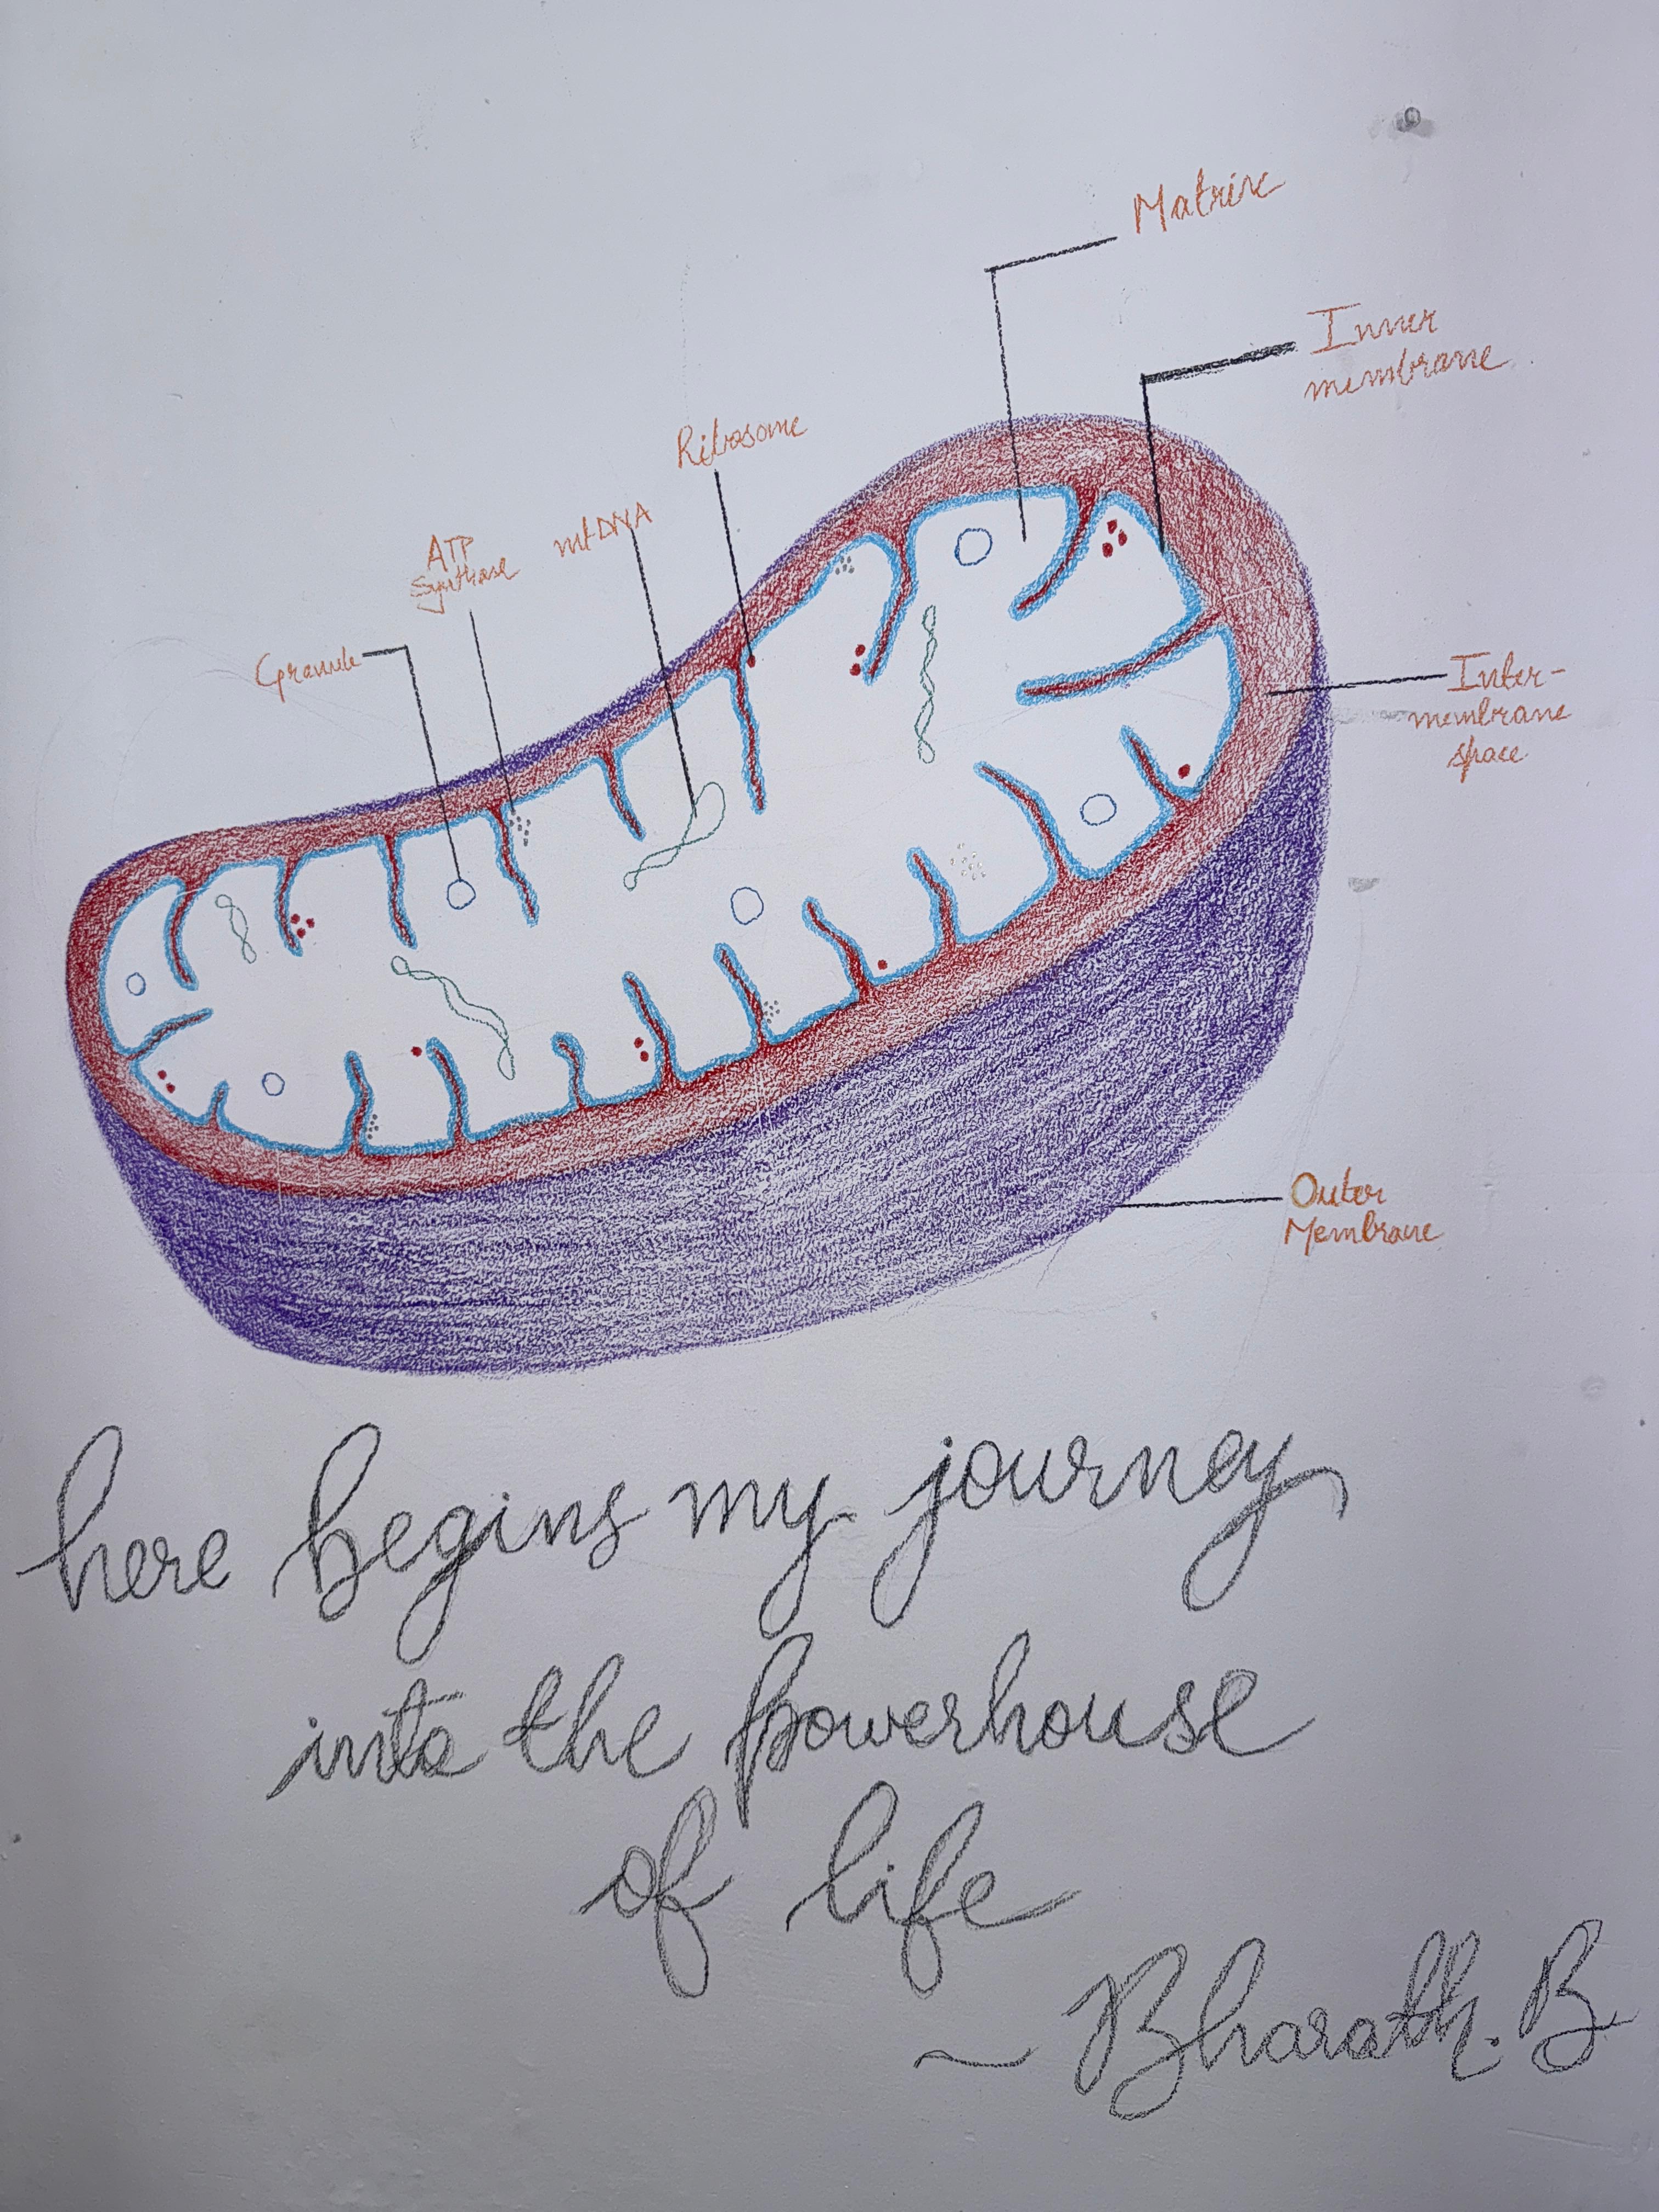 Matrix
Inner
membrane
Ribosome
mtDNA
ATP
Synthase
Granule
Inter-
membrane
space
Outer
Membrane
here begins my journey
into the powerhouse
of life
~ Bharath. B